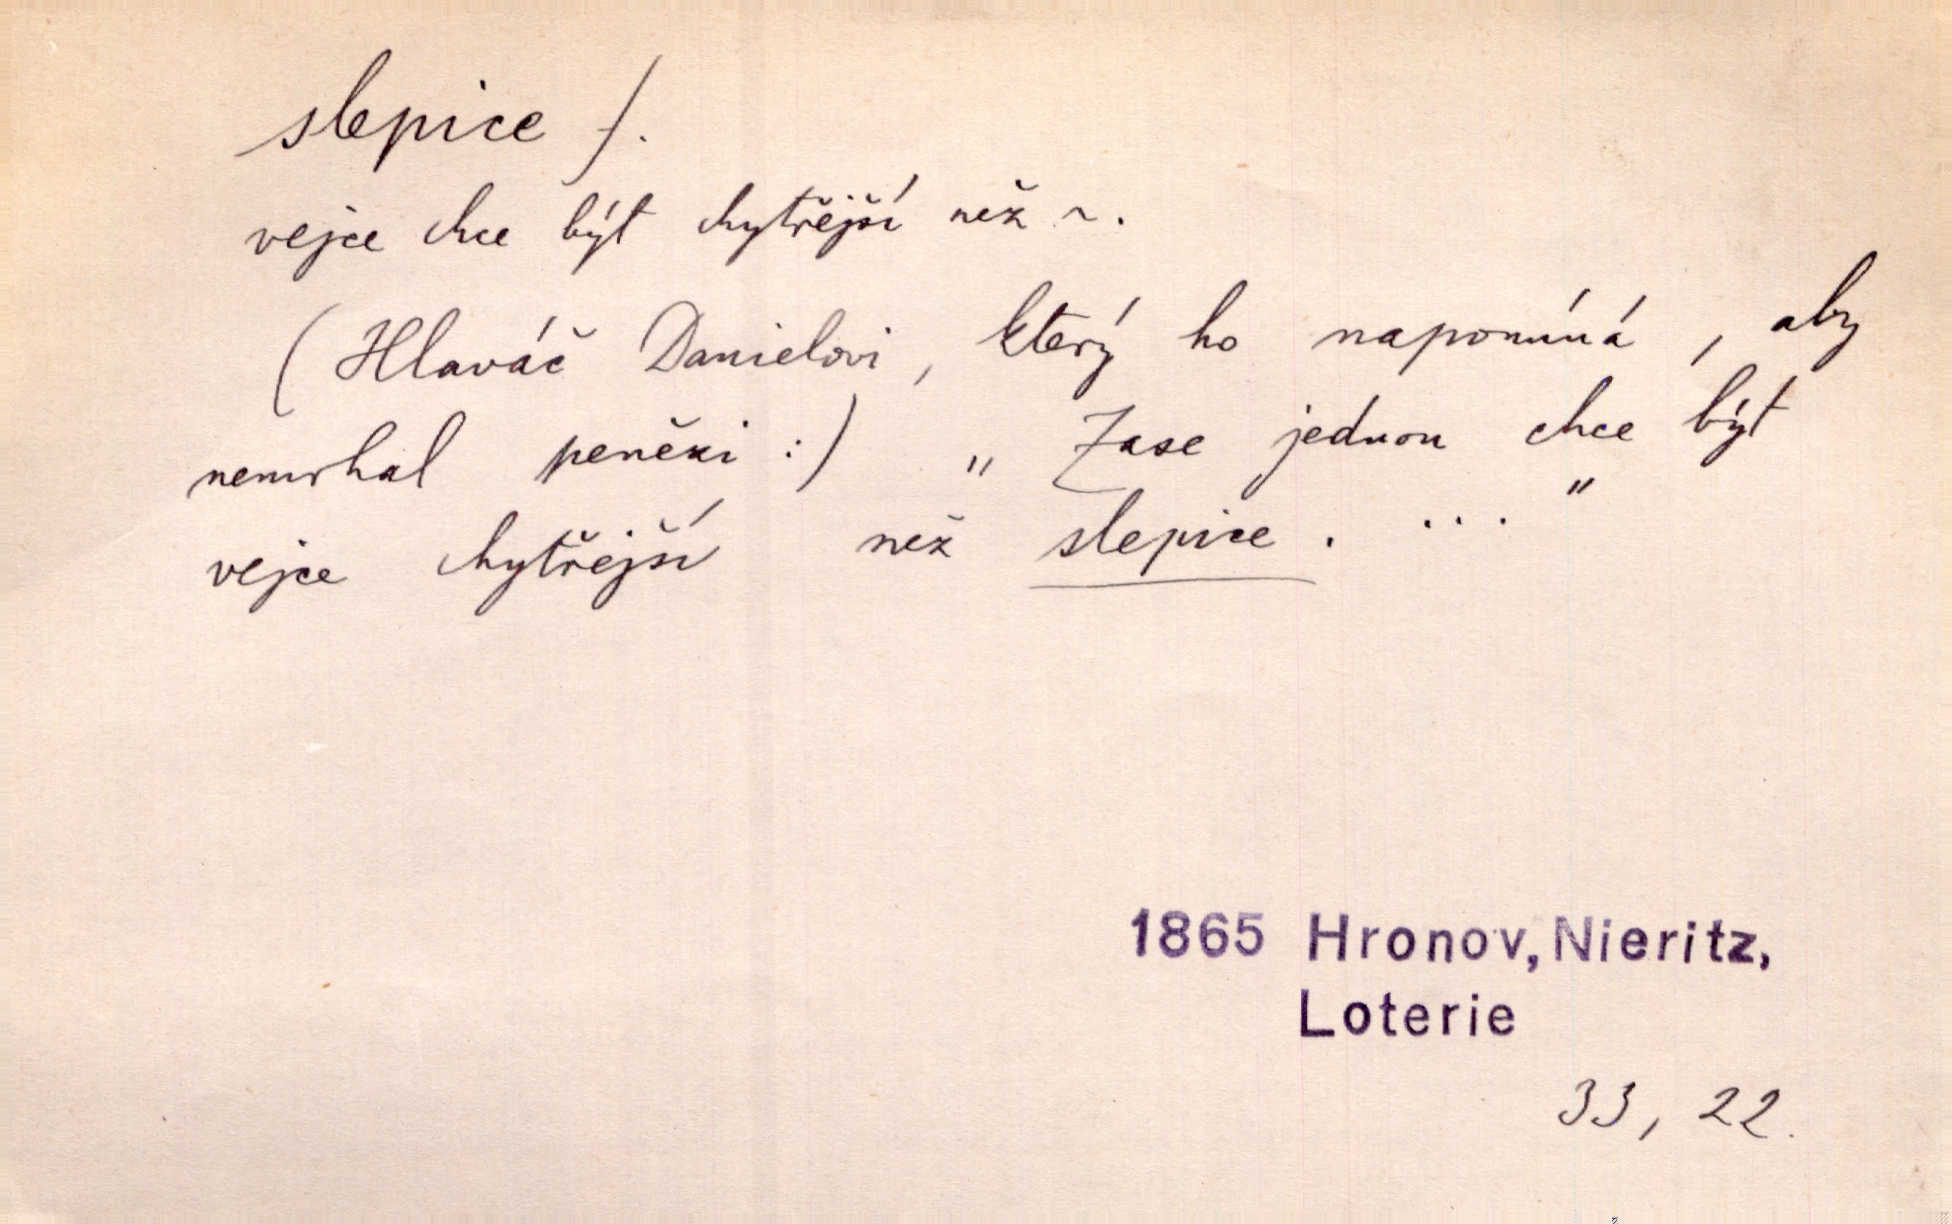 slepice f.
vejce chce být chytřejší než ~.
(Hlaváč Danielovi, který ho napomíná, aby
nemrhal penězi:) „Zase jednou chce být
vejce chytřejší než slepice. ..."
1865 Hronov, Nieritz,
Loterie
33, 22.